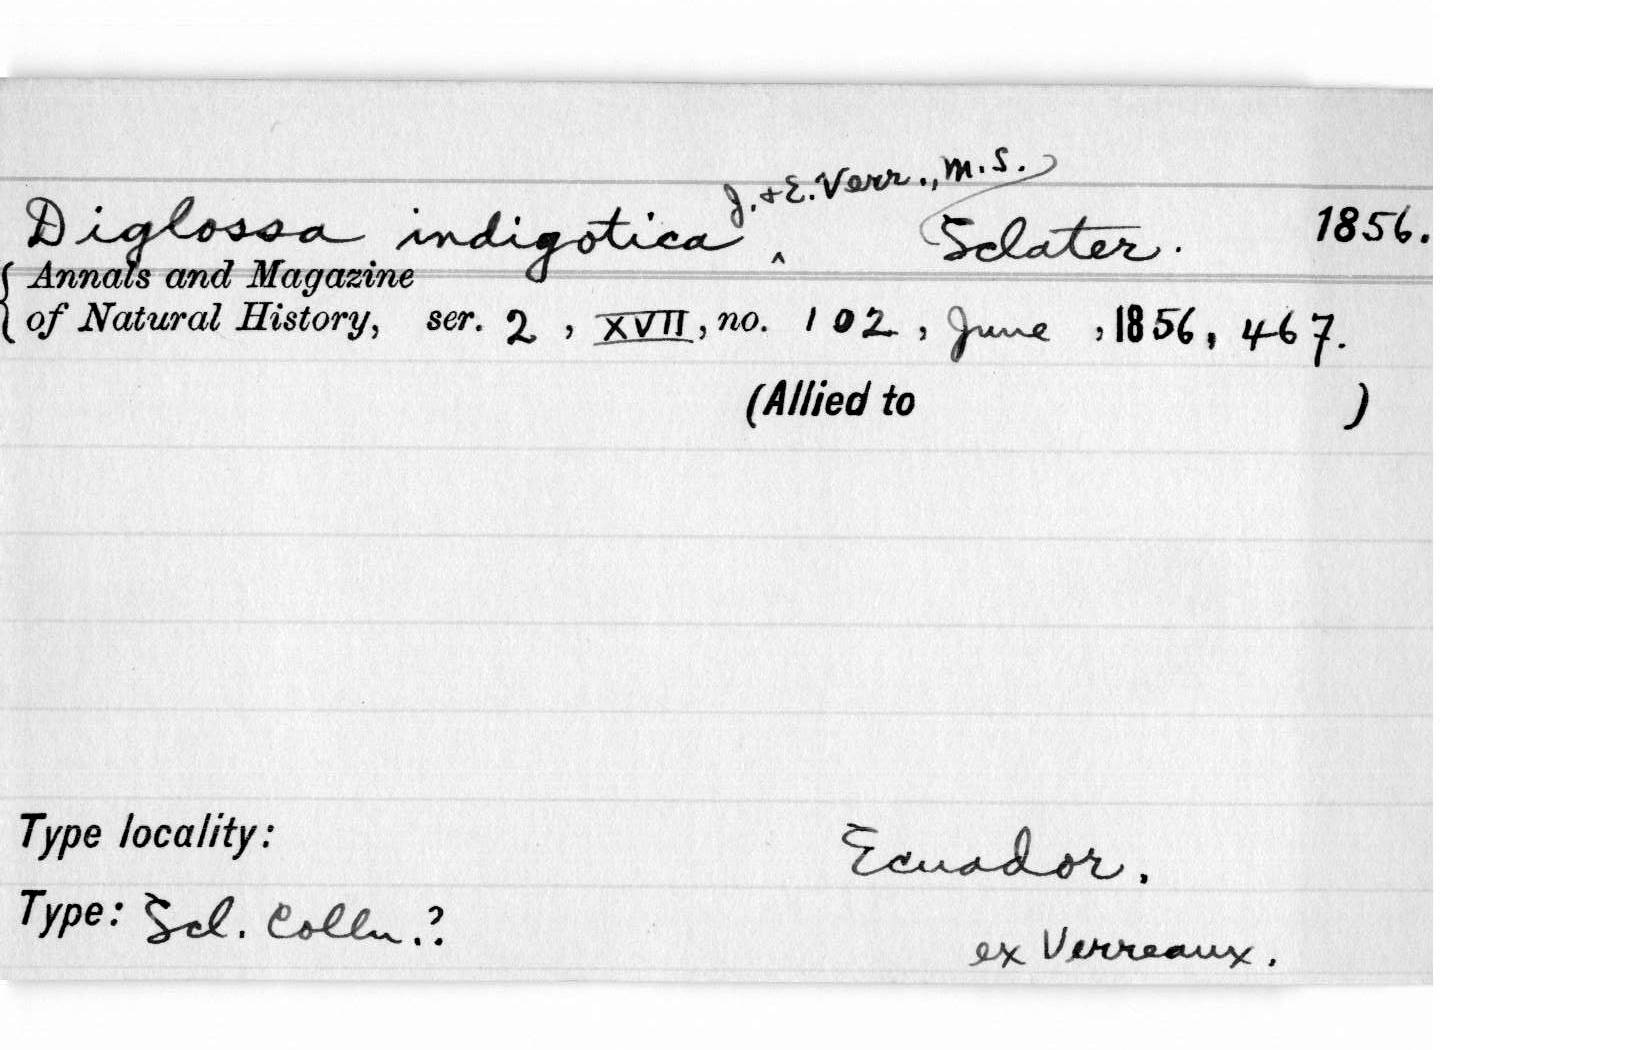 J. + E. Verr., M.S.
Diglossa indigotica ^ Sclater. 1856.
Annals and Magazine
of Natural History, ser. 2, XVII, no. 102, June, 1856, 467.
(Allied to )
Type locality: Ecuador.
Type: Scl. Colln.?
ex Verreaux.